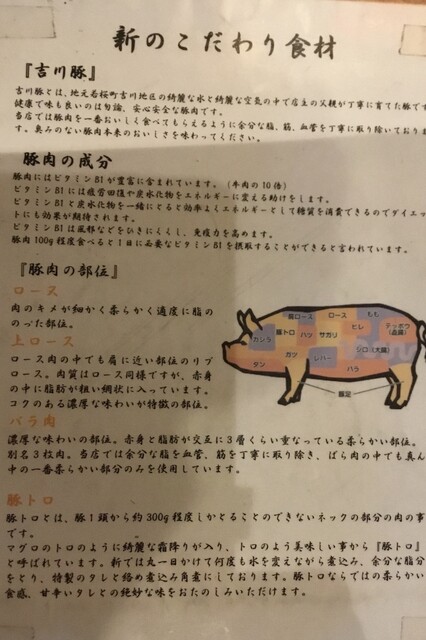 新のこだわり食材
『吉川豚』
吉川豚とは、地元若桜町吉川地区の綺麗な水と綺麗な空気の中で店主の父親が丁寧に育てた豚です
健康で味も良いのは勿論、安心安全な豚肉です。
当店では豚肉を一番おいしく食べてもらえるように余分な脂、筋、血管を丁寧に取り除いておりま
す。臭みのない豚肉本来のおいしさを味わってください。
豚肉の成分
豚肉にはビタミンB1が豊富に含まれています。（牛肉の10倍）
ビタミンB1には疲労回復や炭水化物をエネルギーに変える助けをします。
ビタミンB1と炭水化物を一緒にとると効率よくエネルギーとして糖質を消費できるのでダイエッ
トにも効果が期待されます。
ビタミンB1は風邪などをひきにくくし、免疫力を高めます。
豚肉100g程度食べると1日に必要なビタミンB1を摂取することができると言われています。
『豚肉の部位』
ロース
肉のキメが細かく柔らかく適度に脂の
のった部位。
上ロース
ロース肉の中でも肩に近い部位のリブ
ロース。肉質はロース同様ですが、赤身
の中に脂肪が粗い網状に入っています。
コクのある濃厚な味わいが特徴の部位。
肩ロース
ロース
もも
カシラ
豚トロ
ハツ
サガリ
ヒレ
テッポウ
(直腸)
タン
ガツ
レバー
シロ(大腸)
バラ
豚足
バラ肉
濃厚な味わいの部位。赤身と脂肪が交互に3層くらい重なっている柔らかい部位。
別名3枚肉。当店では余分な脂を血管、筋を丁寧に取り除き、ばら肉の中でも真ん
中の一番柔らかい部分のみを使用しています。
豚トロ
豚トロとは、豚1頭から約300g程度しかとることのできないネックの部分の肉の事
です。
マグロのトロのように綺麗な霜降りが入り、トロのよう美味しい事から『豚トロ』
と呼ばれています。新では丸一日かけて何度も水を変えながら煮込み、余分な脂分
をとり、特製のタレと絡め煮込み角煮にしております。豚トロならではの柔らかい
食感、甘辛いタレとの絶妙な味をおたのしみいただけます。